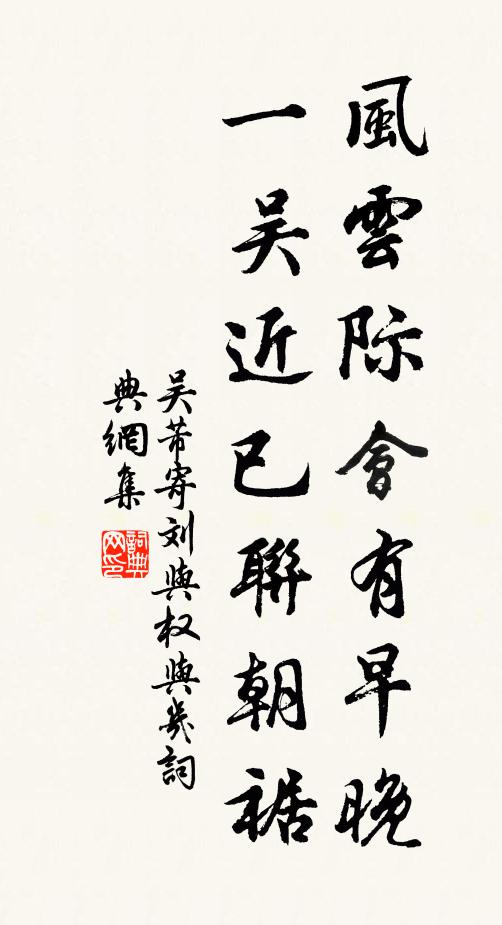 風雲际會有早晚
一吴近已聯朝裾
吴芾寄刘與权與幾詞
典網集
詞典
网印